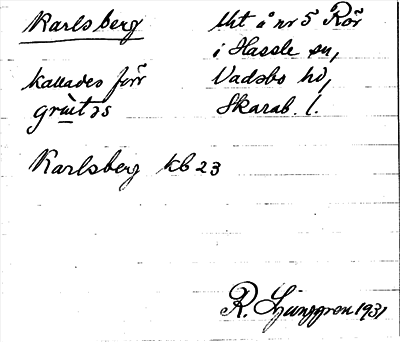 Karlsberg
Uht å nr 5 Rör
i Hassle sn,
Vadsbo hd,
Skarab. l.
kallades förr
Karlsberg kb 23
R. Ljunggren 1931